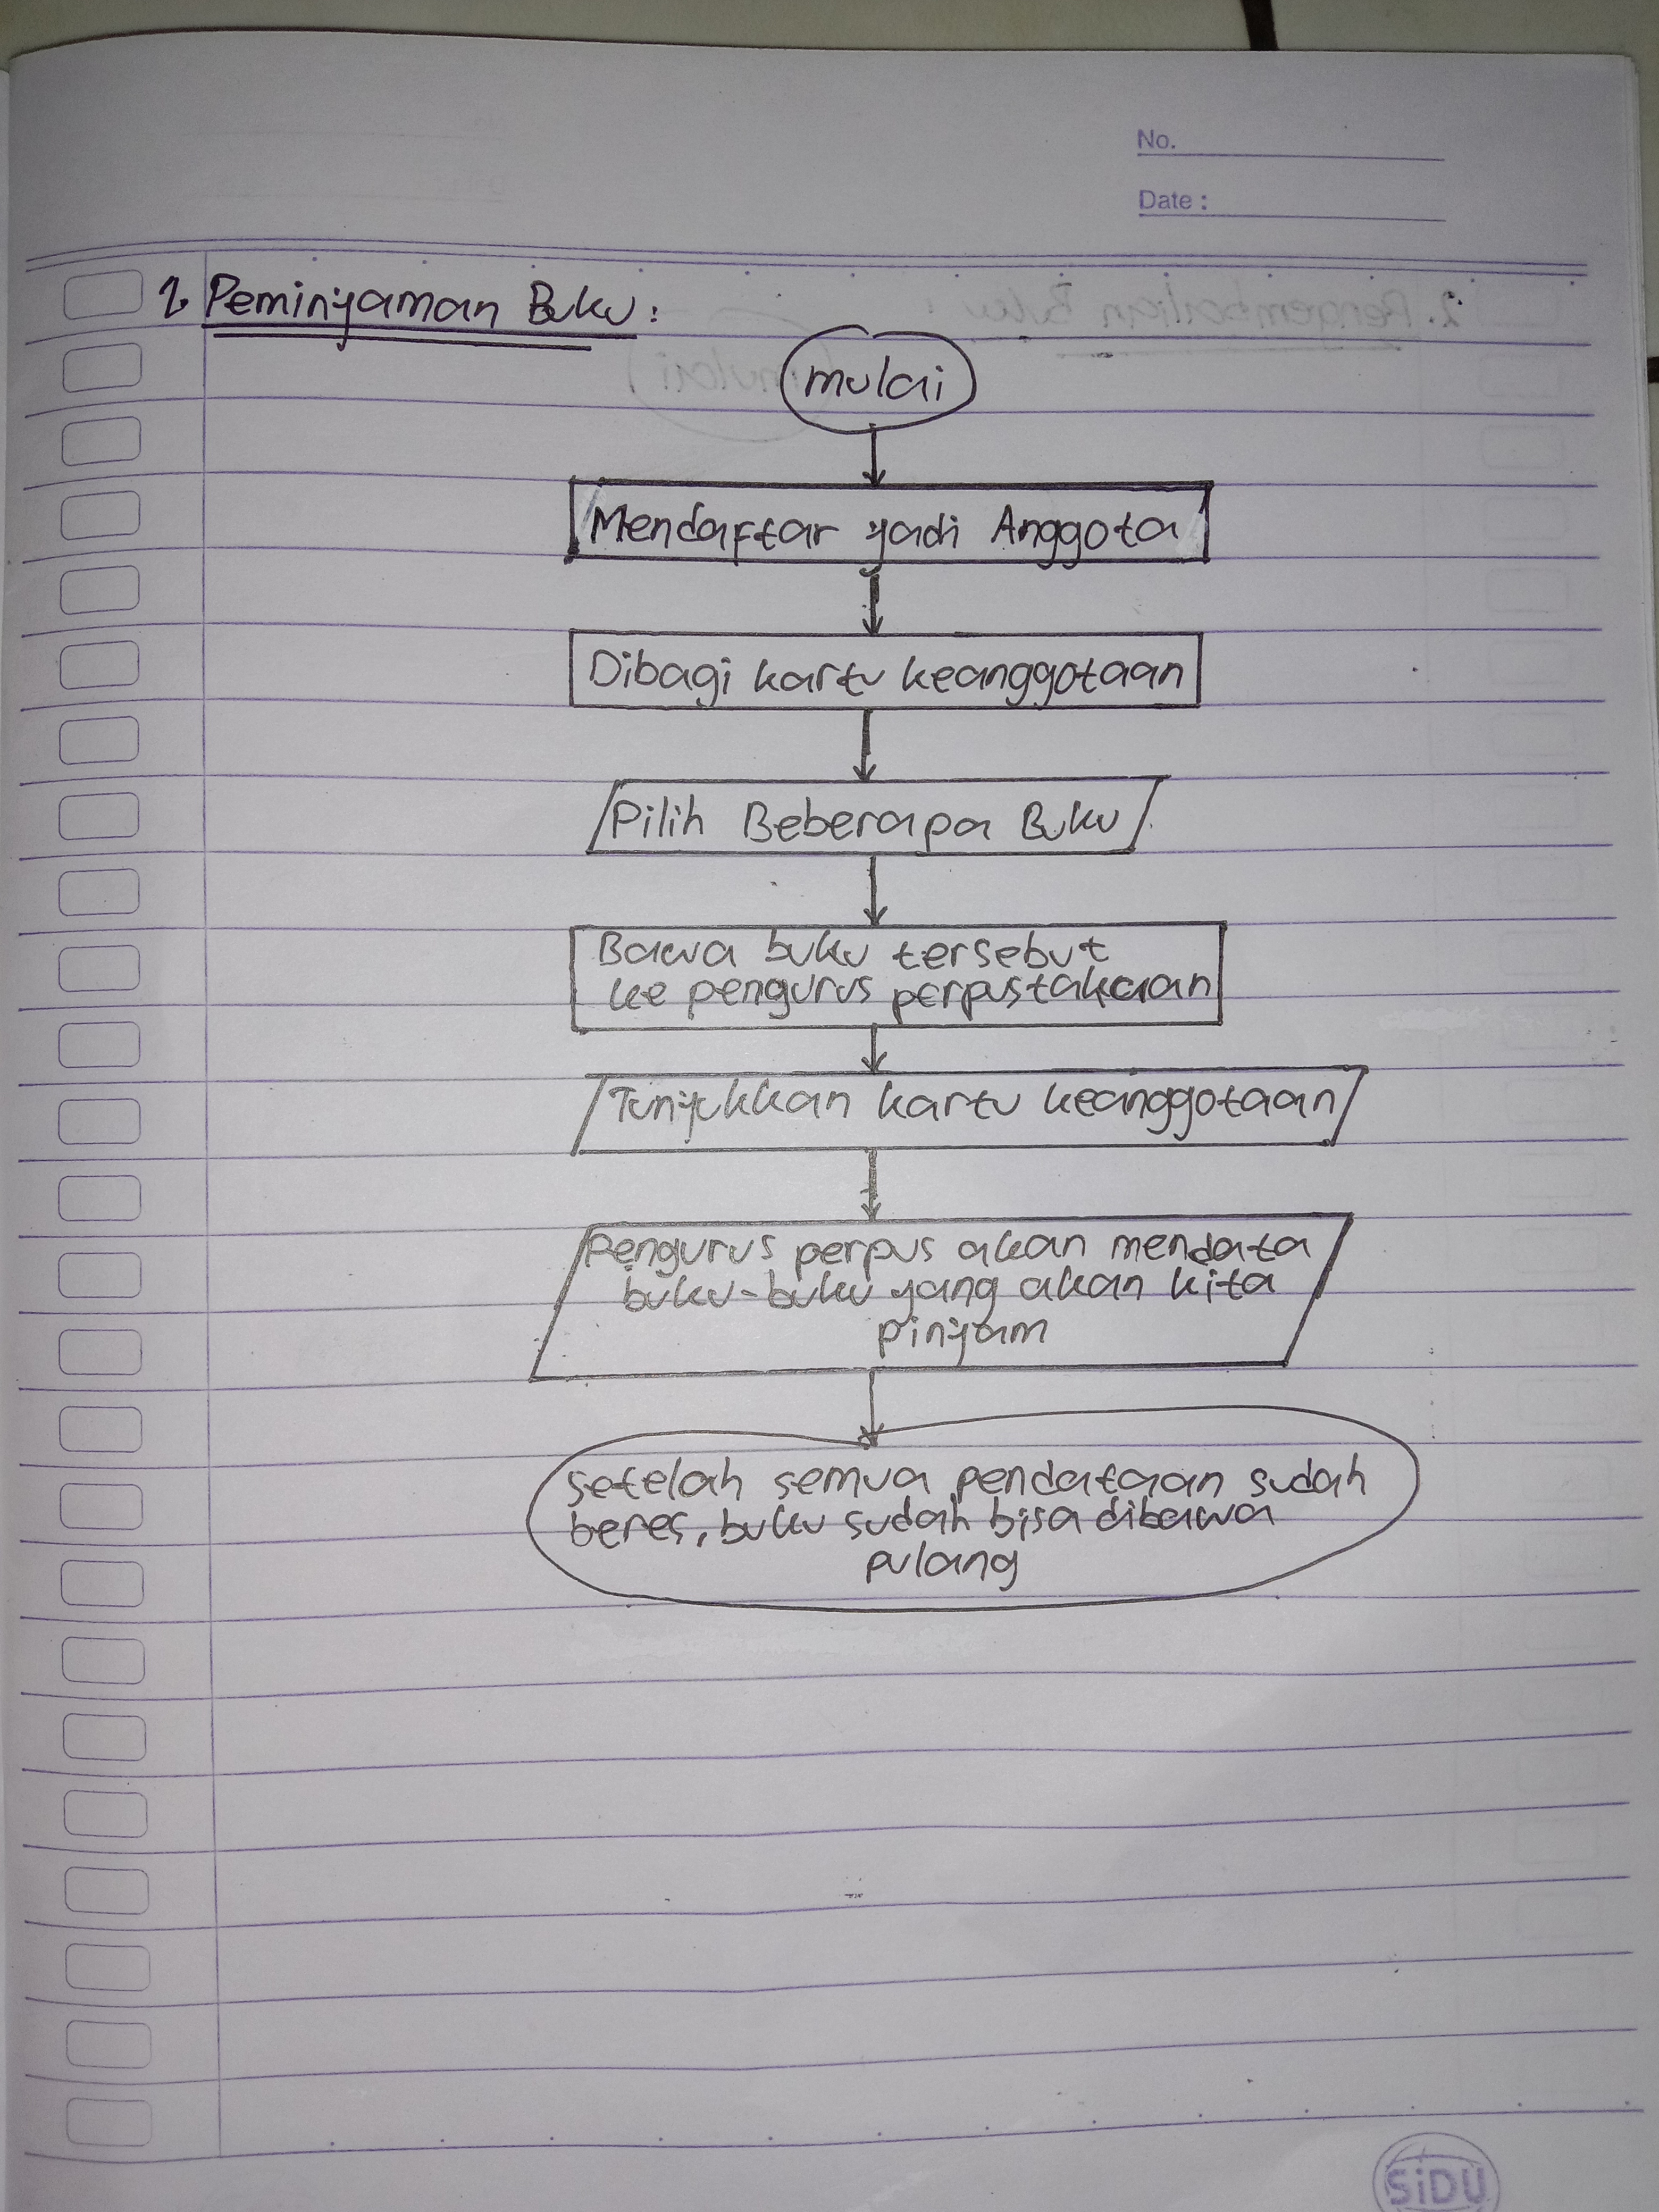 No.
Date :
1. Peminjaman Buku :
mulai
Mendaftar jadi Anggota
Dibagi kartu keanggotaan
Pilih Beberapa Buku
Bawa buku tersebut
ke pengurus perpustakaan
Tunjukkan kartu keanggotaan
Pengurus perpus akan mendata
buku-buku yang akan kita
pinjam
Setelah semua pendataan sudah
beres, buku sudah bisa dibawa
pulang
SiDU